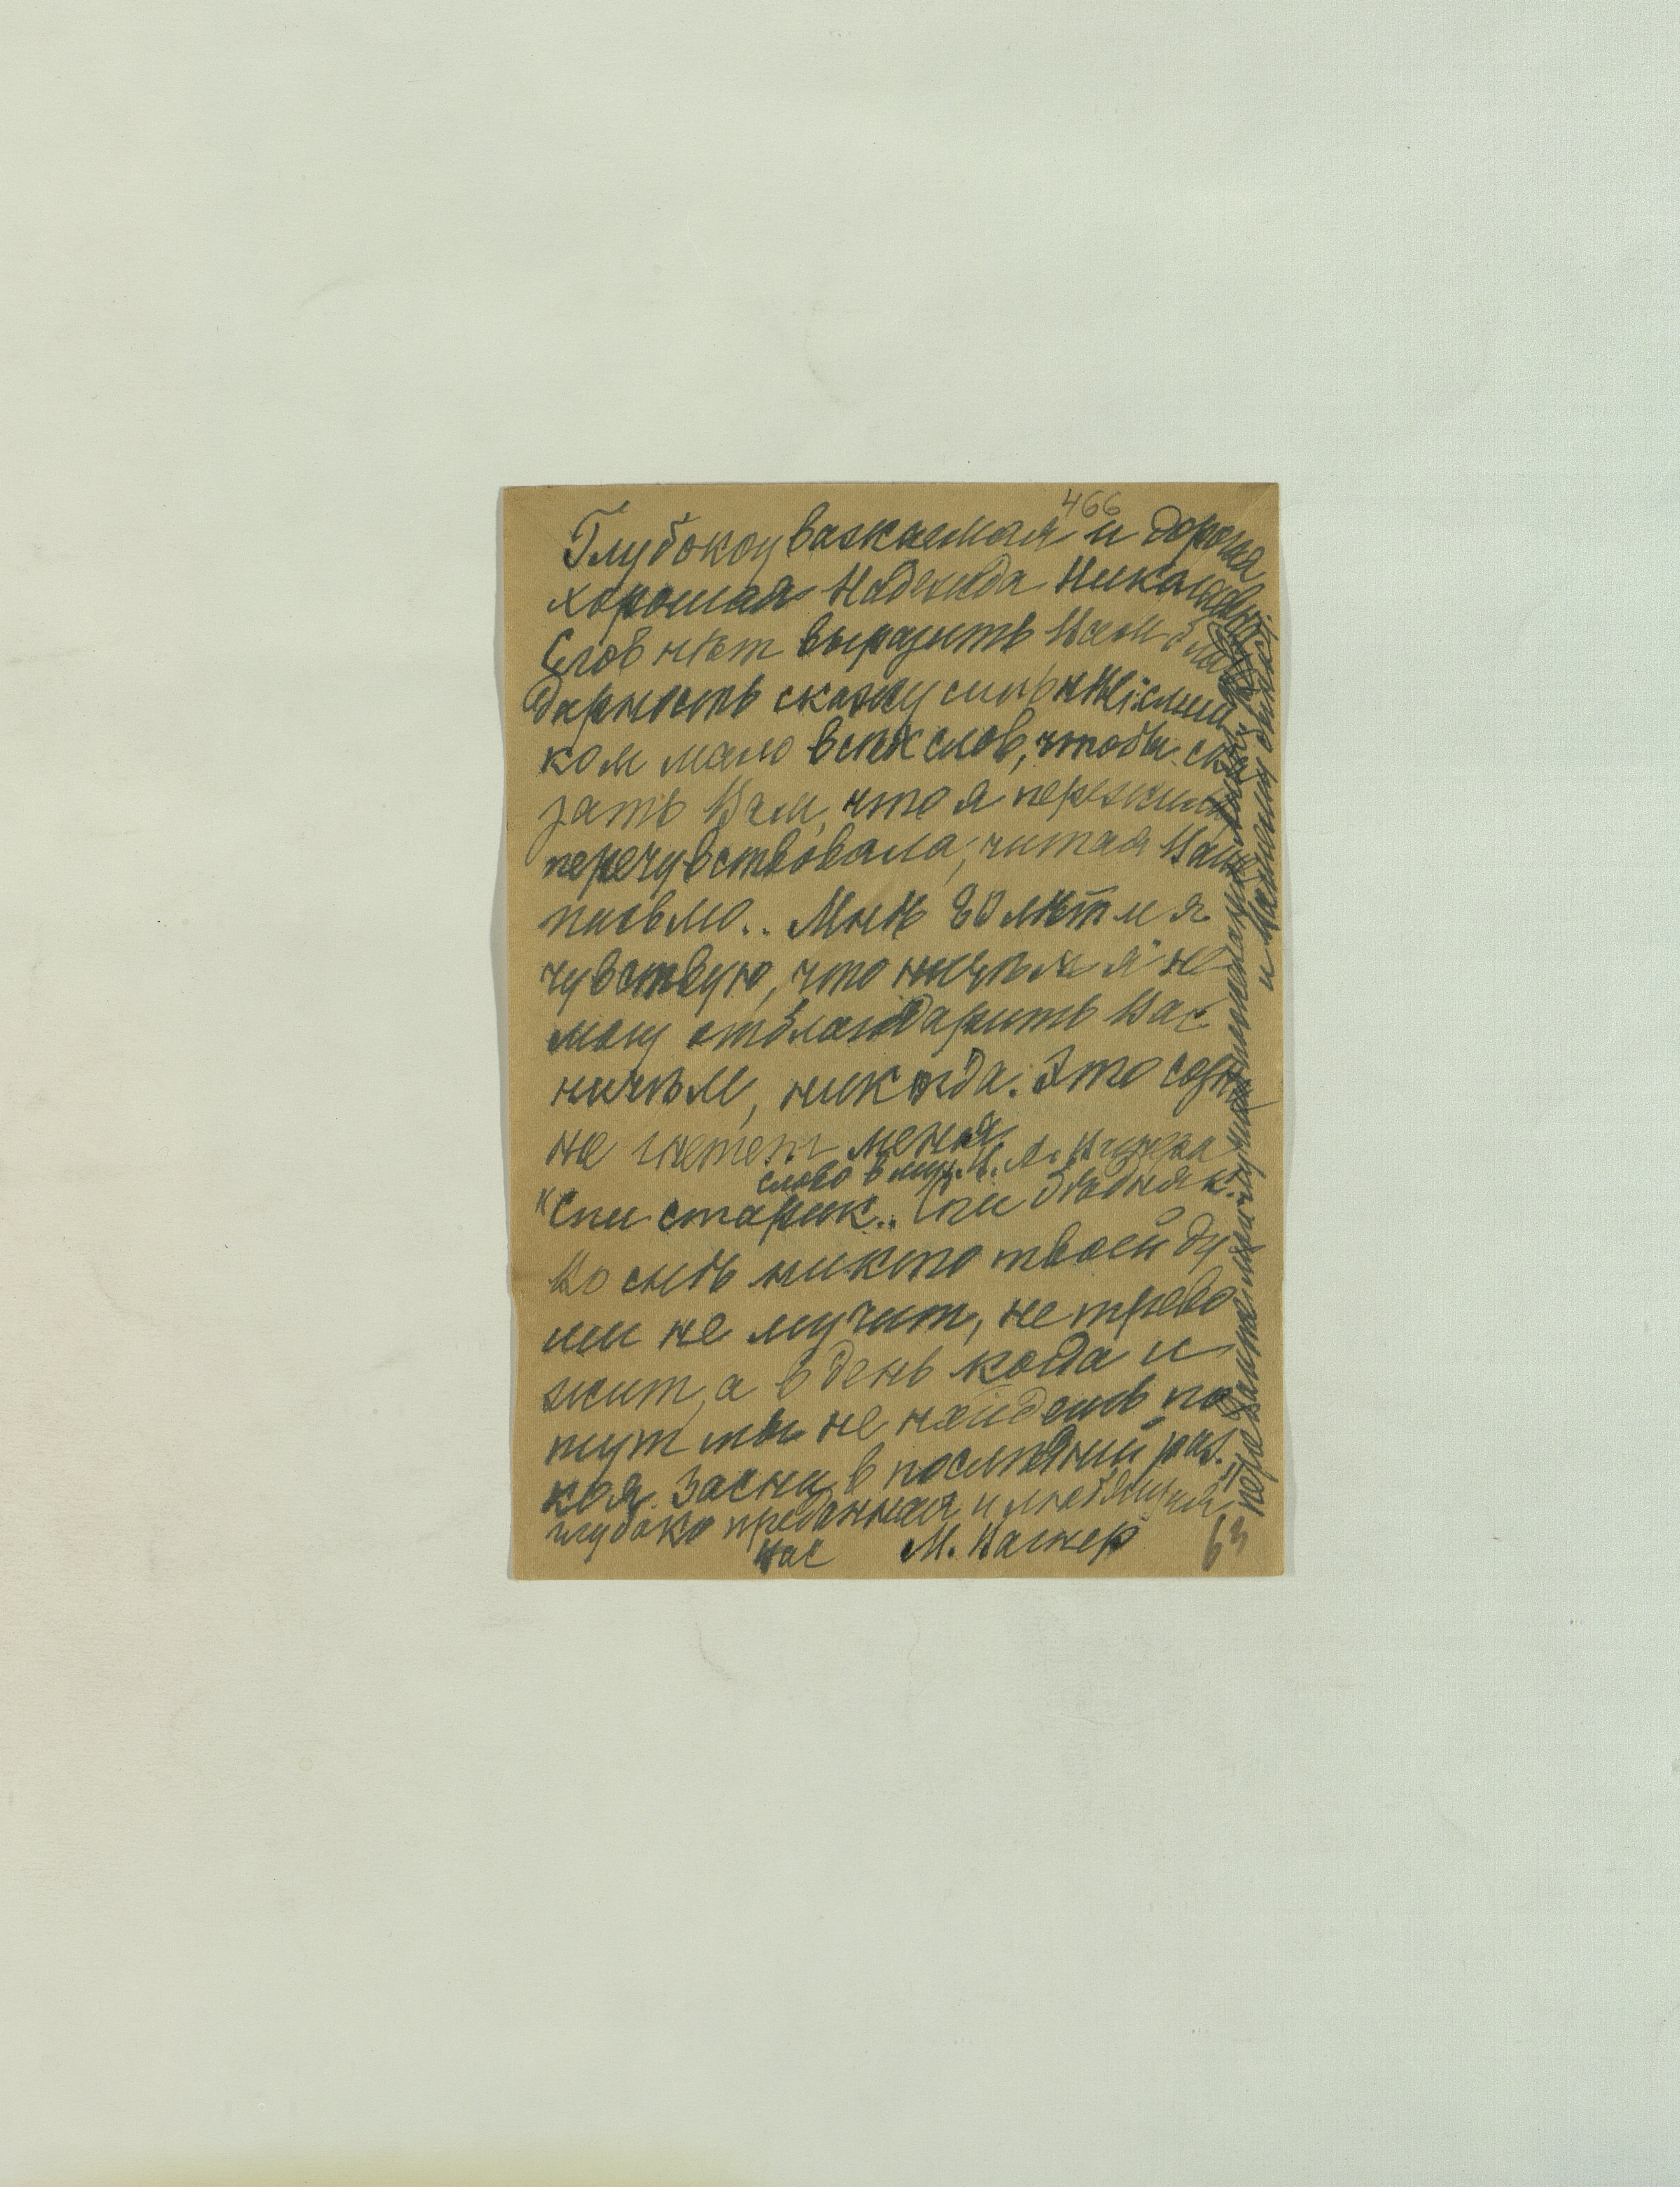 466
Глубокоуважаемая и дорогая
хорошая Надежда Николаевна
Слов нѣт выразить Вам благо
дарность скажу
ком мало всѣх слов, чтобы ска
зать Вам, что я пережила
перечувствовала, читая Ваше
письмо.. Мнѣ 80 лѣт и я
чувствую, что ничѣм я не
могу отблагодарить Вас
ничѣм, никогда. Это
не гнетет меня.
слова в муз. М. А. Вагнера
"Спи старик.. Спи бѣдняк.
Во снѣ никто твоей ду
ши не мучит, не трево
жит, а в день когда и
тут ты не найдешь по
коя. Засни в послѣдний раз."
глубоко преданная и любящая
Вас М. Вагнер
63
передайте мой
и Вашим близк.